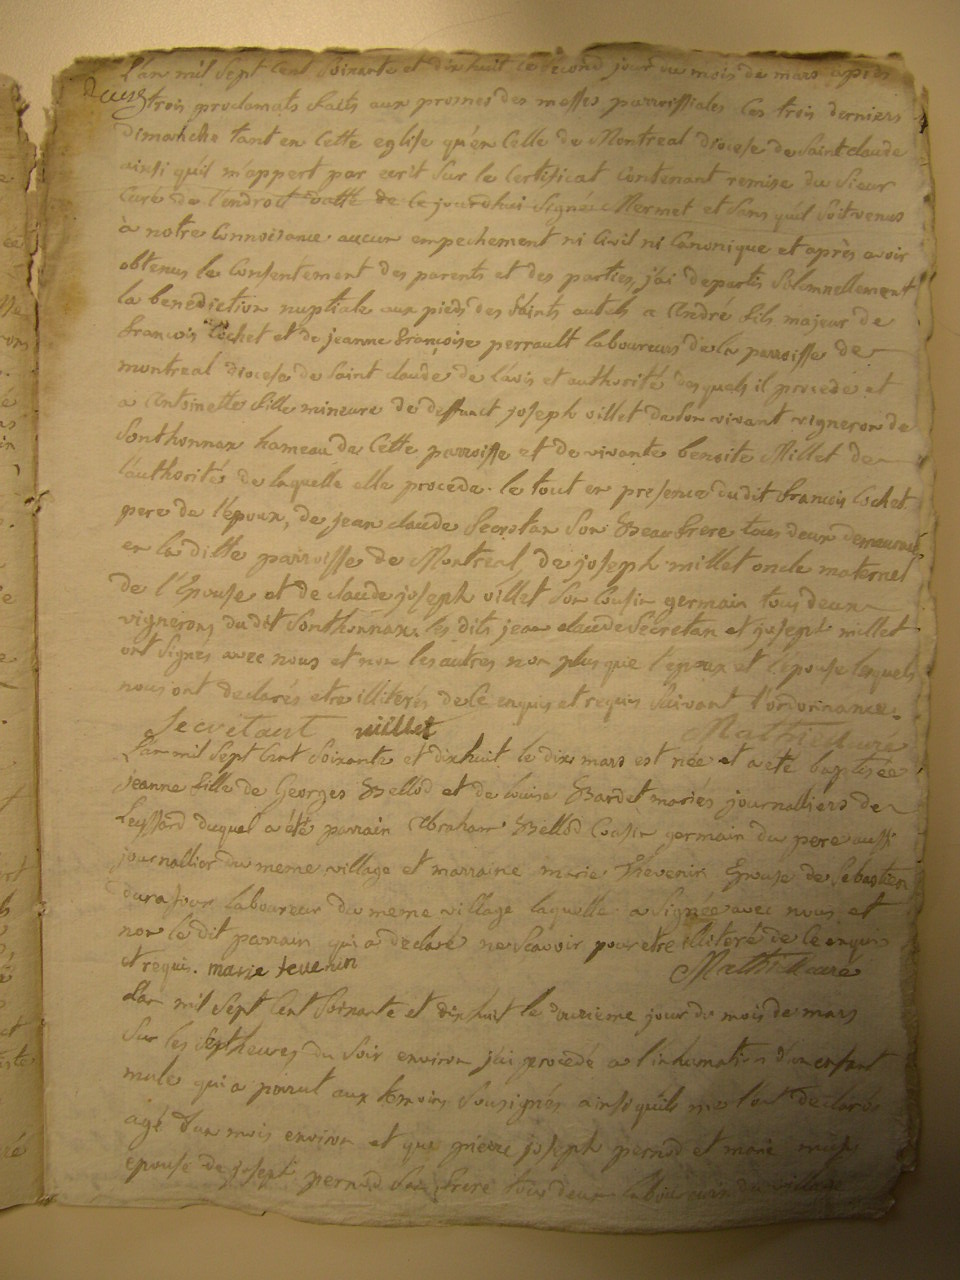 L'an mil sept cent soixante et dixhuit le second jour du mois de mars après
trois proclamats faits aux prosnes des messes parroissiales ces trois derniers
dimanche tant en cette eglise qu'en celle de Montreal diocese de Saint claude
ainsi qu'il m'appert par ecrit sur le certificat contenant remise du sieur
curé de l'endroit datté de ce jourdhui signé Mermet et sans qu'il soit venus
à notre connoisance aucun empechement ni civil ni canonique et après avoir
obtenus le consentement des parents et des parties, j'ai departis solemnellement
la benediction nuptiale aux pieds des saints autels a André fils majeur de
francois Cochet et de jeanne françoise perrault laboureurs de la parroisse de
montreal diocese de saint claude de l'avis et authorité desquels il procede et
a Antoinette fille mineure de deffunct joseph villet de son vivant vigneron de
Sonthonnax hameau de cette parroisse et de vivante benoite Millet de
l'authorité de laquelle elle procede. le tout en presence dudit francois Cochet
pere de l'époux, de jean claude Secretan son Beaufrere tous deux demeurant
en la ditte parroisse de Montreal, de joseph millet oncle maternel
de l'Epouse et de claude joseph villet son cousin germain tous deux
vignerons dudit Sonthonnax. les dits jean claude Secretan et joseph millet
ont signés avec nous et non les autres non plus que l'epoux et l'épouse lesquels
nous ont declarés etre illiterés de ce enquis et requis suivant l'ordonnance.
Secretant millet Mathieu curé
L'an mil sept cent soixante et dixhuit le dix mars est née et a eté baptisée
jeanne fille de Georges Bellod et de louise Bardet mariés journalliers de
Leyssard duquel a été parrain Abraham Bellod Cousin germain du pere aussi
journallier du meme village et marraine marie Thevenin Epouse de Sebastien
durafour laboureur du meme village laquelle a signée avec nous et
non le dit parrain qui a declaré ne scavoir pour etre illiteré de ce enquis
et requi. marie tevenin Mathieu curé
L'an mil sept cent soixante et dixhuit le douzieme jour du mois de mars
sur les sept heures du soir environ j'ai procedé a l'inhumation d'un enfant
male qui a parut aux temoins sousignés ainsi qu'ils me l'ont declarés
agé d'un mois environ et que pierre joseph pernod et marie
epouse de joseph pernod son frere tous deux laboureurs du village